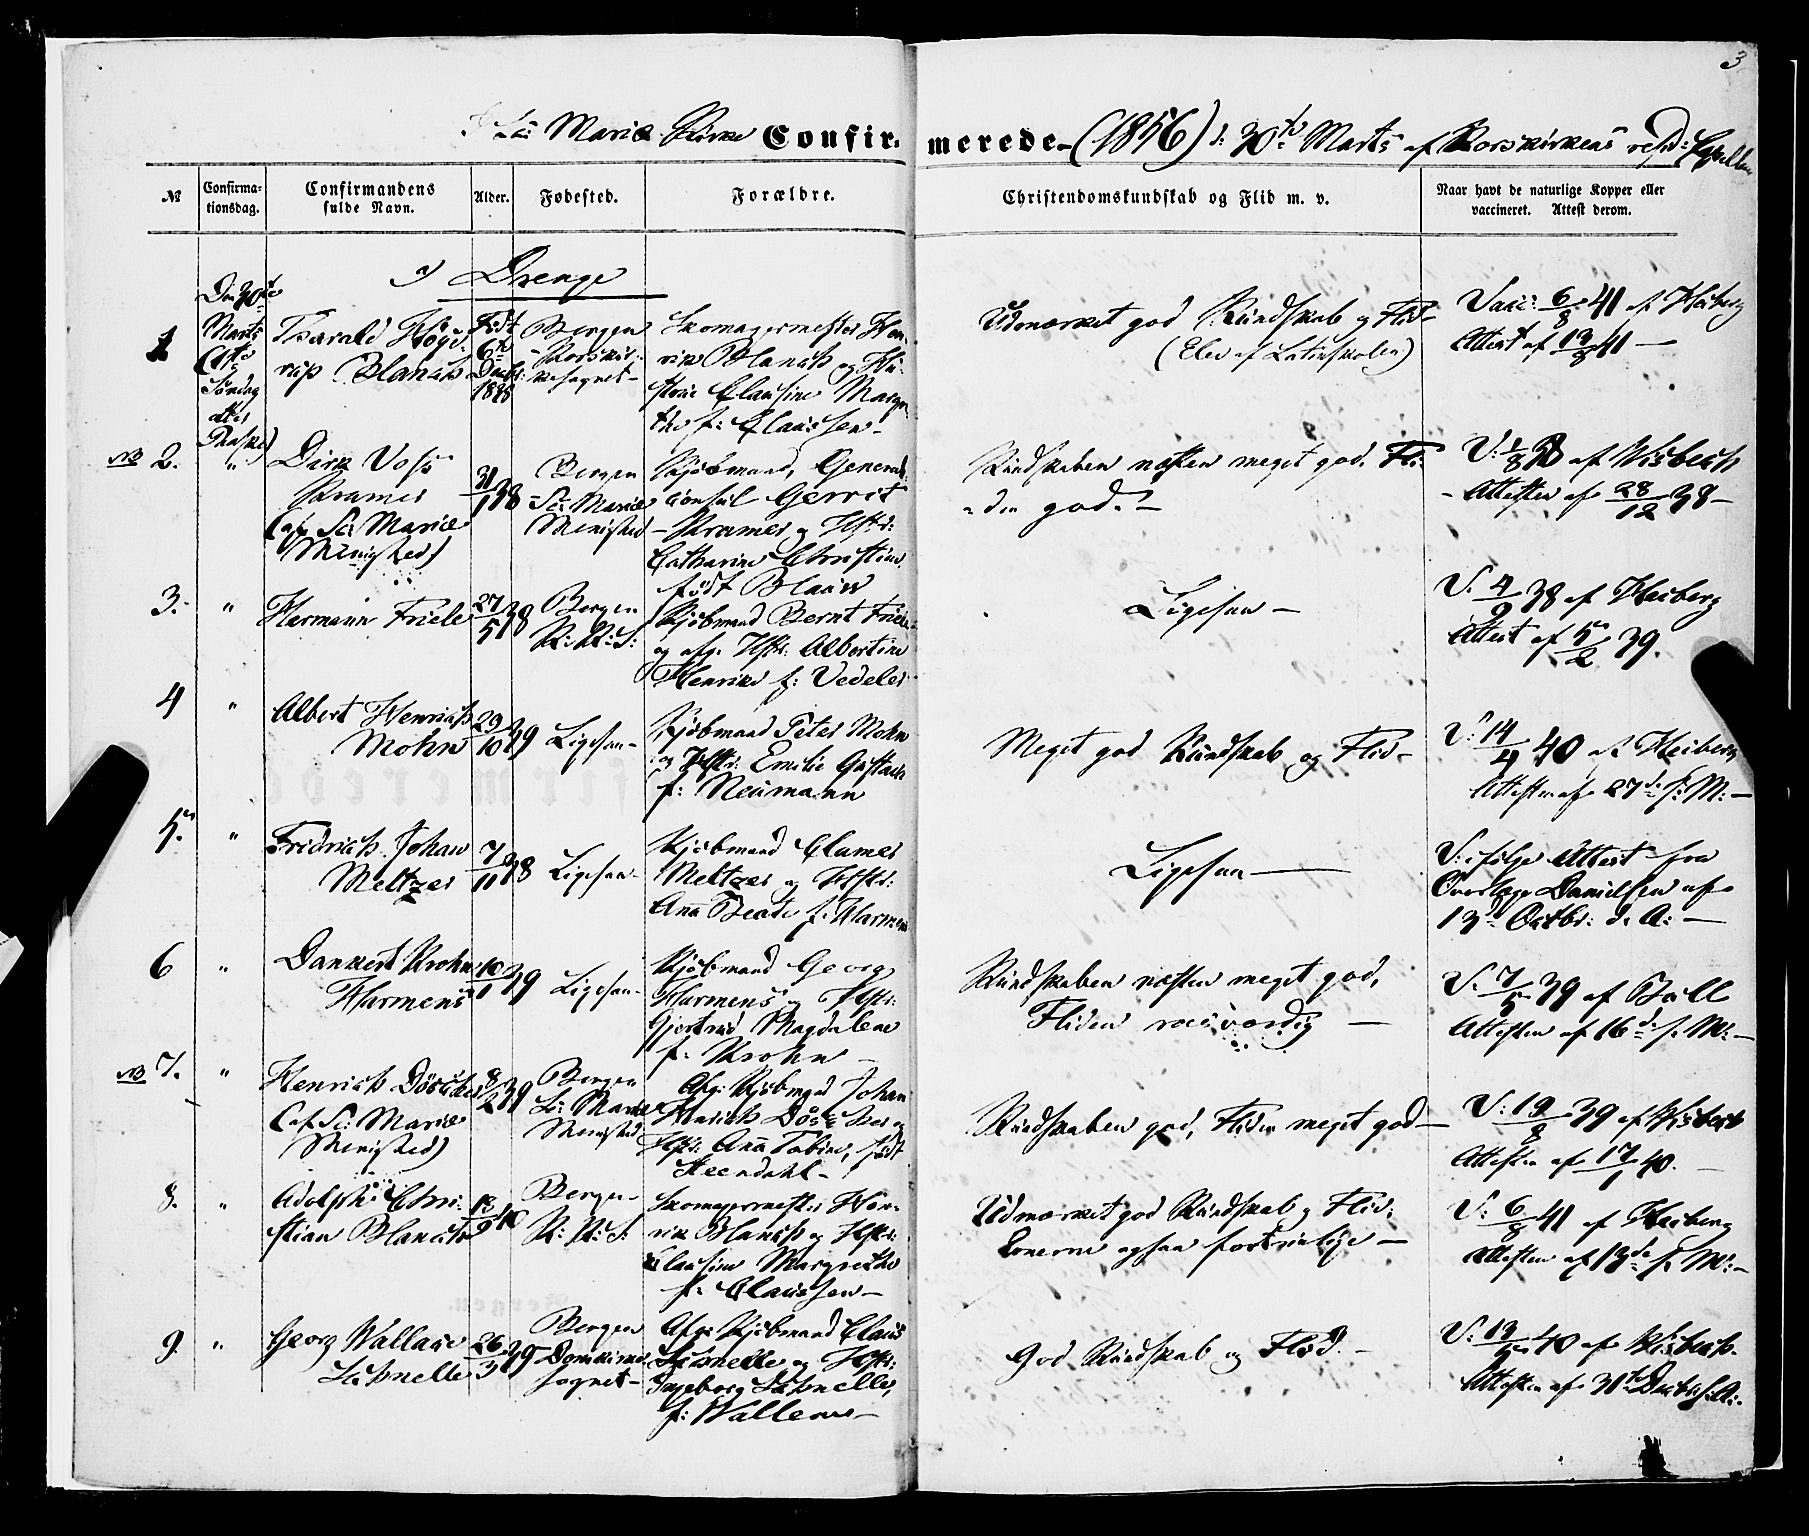 3
Sct Mariæ Kirke Confir-
merede (1856) d: 30te Marts af Korskirkens resid: Capellan
№
Confirma-
tionsdag.
Confirmandens
fulde Navn.
Alder.
Fødested.
Forældre.
Christendomskundskab og Flid m. v.
Naar havt de naturlige Kopper eller
vaccineret. Attest derom.
a) Drenge
1
Den 30te
Marts
(1ste
Søndag
efter
Paaske)
Tharald Høye-
rup Blauch
Født
6te
Decbr:
1838
Bergen
Korskir-
kesognet
Skomagermester Hen-
rik Blauch og Hu-
stru Clausine Margre-
the f: Claussen
Udmærket god Kundskab og Flid
(Elev af Latinskolen)
Vacc: 6/8 41 af Heiberg
Attest af 13/8 41
NB 2.
"
Dirk Vos
Kramer
(af Sct Mariæ
Menighed)
31/1 38
Bergen
Sct Mariæ
Menighed
Kjøbmand, General-
consul Gerrit
Kramer og Hstr:
Catharine Christine
født Blauw
Kundskaben næsten meget god, Fli-
den god.
V: 1/8 38 af Wisbech
Attesten af 28/12 38
3.
"
Hermann Friele
27/5 38
Bergen
K: K: S:
Kjøbmand Bernt Friele
og afg. Hstr: Albertine
Henrike f: Vedeler
Ligesaa
V. 4/9 38 af Heiberg
Attest af 5/2 39.
4
"
Albert Henrich
Mohn
29/10 39
Ligesaa
Kjøbmand Peter Mohn
og Hstr: Emilie Gustave
f: Neumann
Meget god Kundskab og Flid
V: 14/4 40 af Heiberg
Attesten af 27de s: M:
5.
"
Fridrich Johan
Meltzer
7/11 38
Ligesaa
Kjøbmand Clamer
Meltzer og Hstr:
Ana Beate f. Harmens
Ligesaa
V: ifølge Attest fra
Overlæge Danielsen af
13de Octbr: d. A:
6
"
Dankert Krohn
Harmens
10/1 39
Ligesaa
Kjøbmand Georg
Harmens og Hstr:
Gjertrud Magdalene
f. Krohn
Kundskaben næsten meget god,
Fliden roesværdig
V. 7/5 39 af Bull
Attesten af 16de s. M:
NB 7.
"
Henrich Döscher
(af Sct Mariæ
Menighed)
8/2 39
Bergen
Sct Mariæ
Menighed
Afg: Kjøbmand Johan
Hinrich Döscher og
Hstr: Ana Tabine, født
Steendahl
Kundskaben god, Fliden meget god
V: 19/8 39 af Wisbech
Attesten af 17/1 40.
8.
"
Adolph Chri-
stian Blauch
13/9 40
Bergen
K: K: S:
Skomagermester Hen-
rik Blauch og Hstr:
Clausine Margrethe
f. Claussen
Udmærket god Kundskab og Flid;
Evnerne ogsaa fortrinlige
V: 6/8 41 af Heiberg
Attesten af 13de s. M:
9.
"
Georg Wallace
Schnelle
26/3 39
Bergen
Domkirke-
sognet
Afg: Kjøbmand Claus
Schnelle og Hstr:
Ingeborg Schnelle,
f: Wallem
God Kundskab og Flid.
V: 19/5 40 af Wisbech.
Attesten af 31te Decbr s. A: